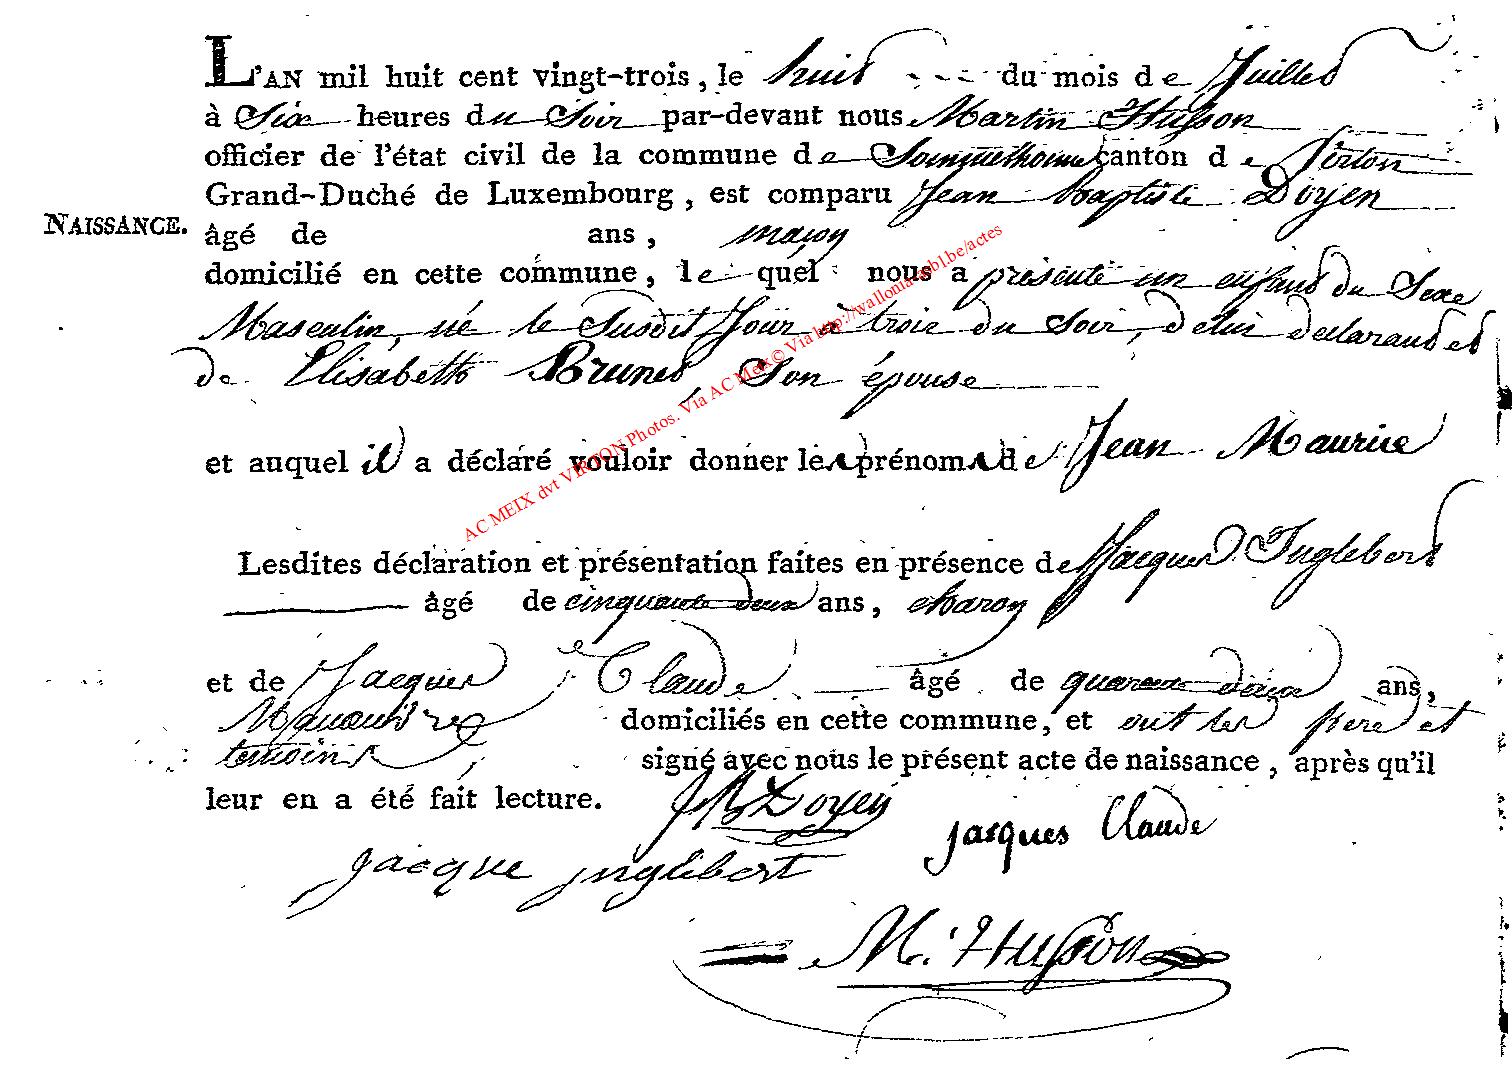 L'AN mil huit cent vingt-trois, le huit du mois de Juillet
à Six heures du Soir par-devant nous Martin Husson
officier de l'état civil de la commune de Sommethonne canton de Virton
Grand-Duché de Luxembourg, est comparu Jean Baptiste Doyen
NAISSANCE.
âgé de ans, maçon
domicilié en cette commune, le quel nous a présenté un enfant du Sexe
Masculin, né le Susdit Jour à trois du Soir, de lui declarant et
de Elisabeth Brunet, Son épouse
et auquel il a déclaré vouloir donner les prénoms de Jean Maurice
Lesdites déclaration et présentation faites en présence de Jacques Inglebert
âgé de cinquante deux ans, charon
et de Jacques Claude âgé de quarante deux ans,
Manouvre domiciliés en cette commune, et ont les père et
temoins signé avec nous le présent acte de naissance, après qu'il
leur en a été fait lecture.
JB Doyen
Jacques Claude
jacque inglebert
M. Husson
AC MEIX dvt VIRTON Photos. Via AC Meix© Via http://walloniaasbl.be/actes